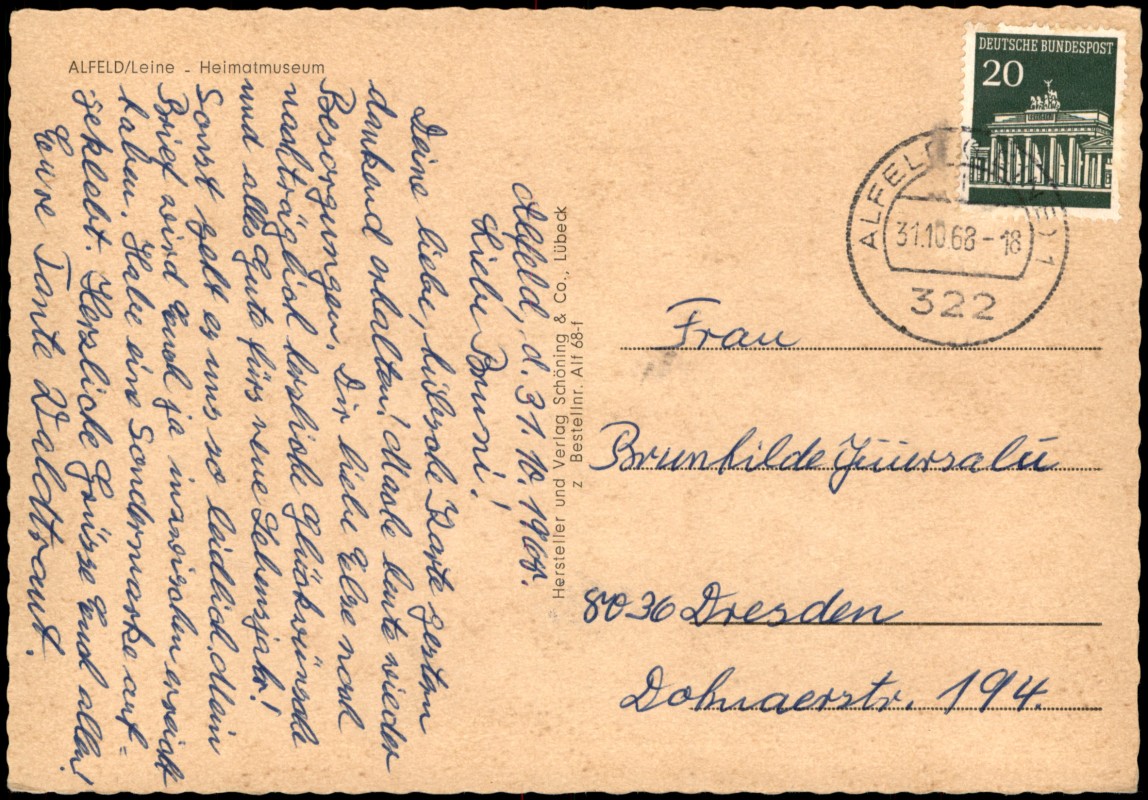 ALFELD/Leine - Heimatmuseum
Alfeld, d. 31. 10. 1968.
Liebe Bruni!
Deine liebe, hübsche Karte gestern
dankend erhalten! Mache heute wieder
Besorgungen. Dir liebe Else noch
nachträglich herzliche Glückwünsche
und alles Gute fürs neue Lebensjahr!
Sonst geht es uns so leidlich. Mein
Brief wird Euch ja inzwischen erreicht
haben. Habe eine Sondermarke auf=
geklebt. Herzliche Grüsse Euch allen!
Eure Tante Waldtraut.
Hersteller und Verlag Schöning & Co., Lübeck
z Bestellnr. Alf 68-f
DEUTSCHE BUNDESPOST
20
ALFELD (LEINE) 1
31.10.68-18
322
Frau
Brunhilde
8036 Dresden
Dohnaerstr. 194.